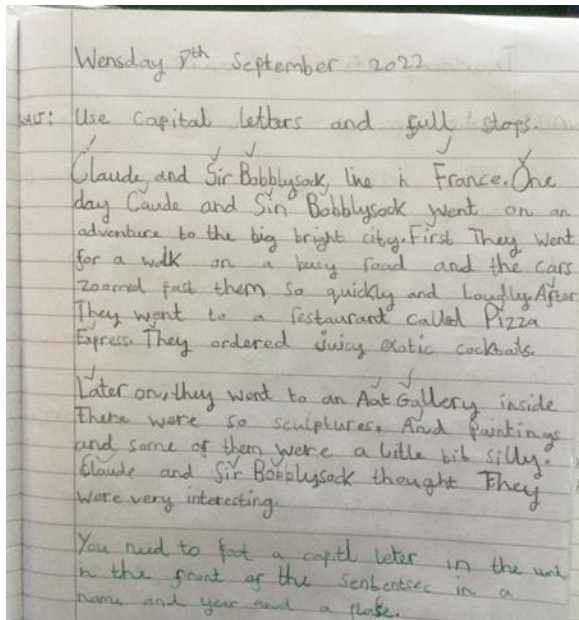 Wensday 7th September 2022
WALT: Use Capital letters and full stops.
Claude, and Sir Bobblysock, live in France. One
day Caude and Sir Bobblysock went on an
adventure to the big bright city. First They went
for a walk on a busy road and the cars
zoomed past them so quickly and Loudly. After
They went to a restaurant called Pizza
Express. They ordered Juicy exotic cocktails.
Later on, they went to an Aat Gallery inside
There were so sculptures. And paintings
and some of them were a little bit silly.
Claude and Sir Bobblysock thought They
were very interesting.
You need to poot a capitl leter in the
in the front of the sentantsec in a
name and year and a plase.